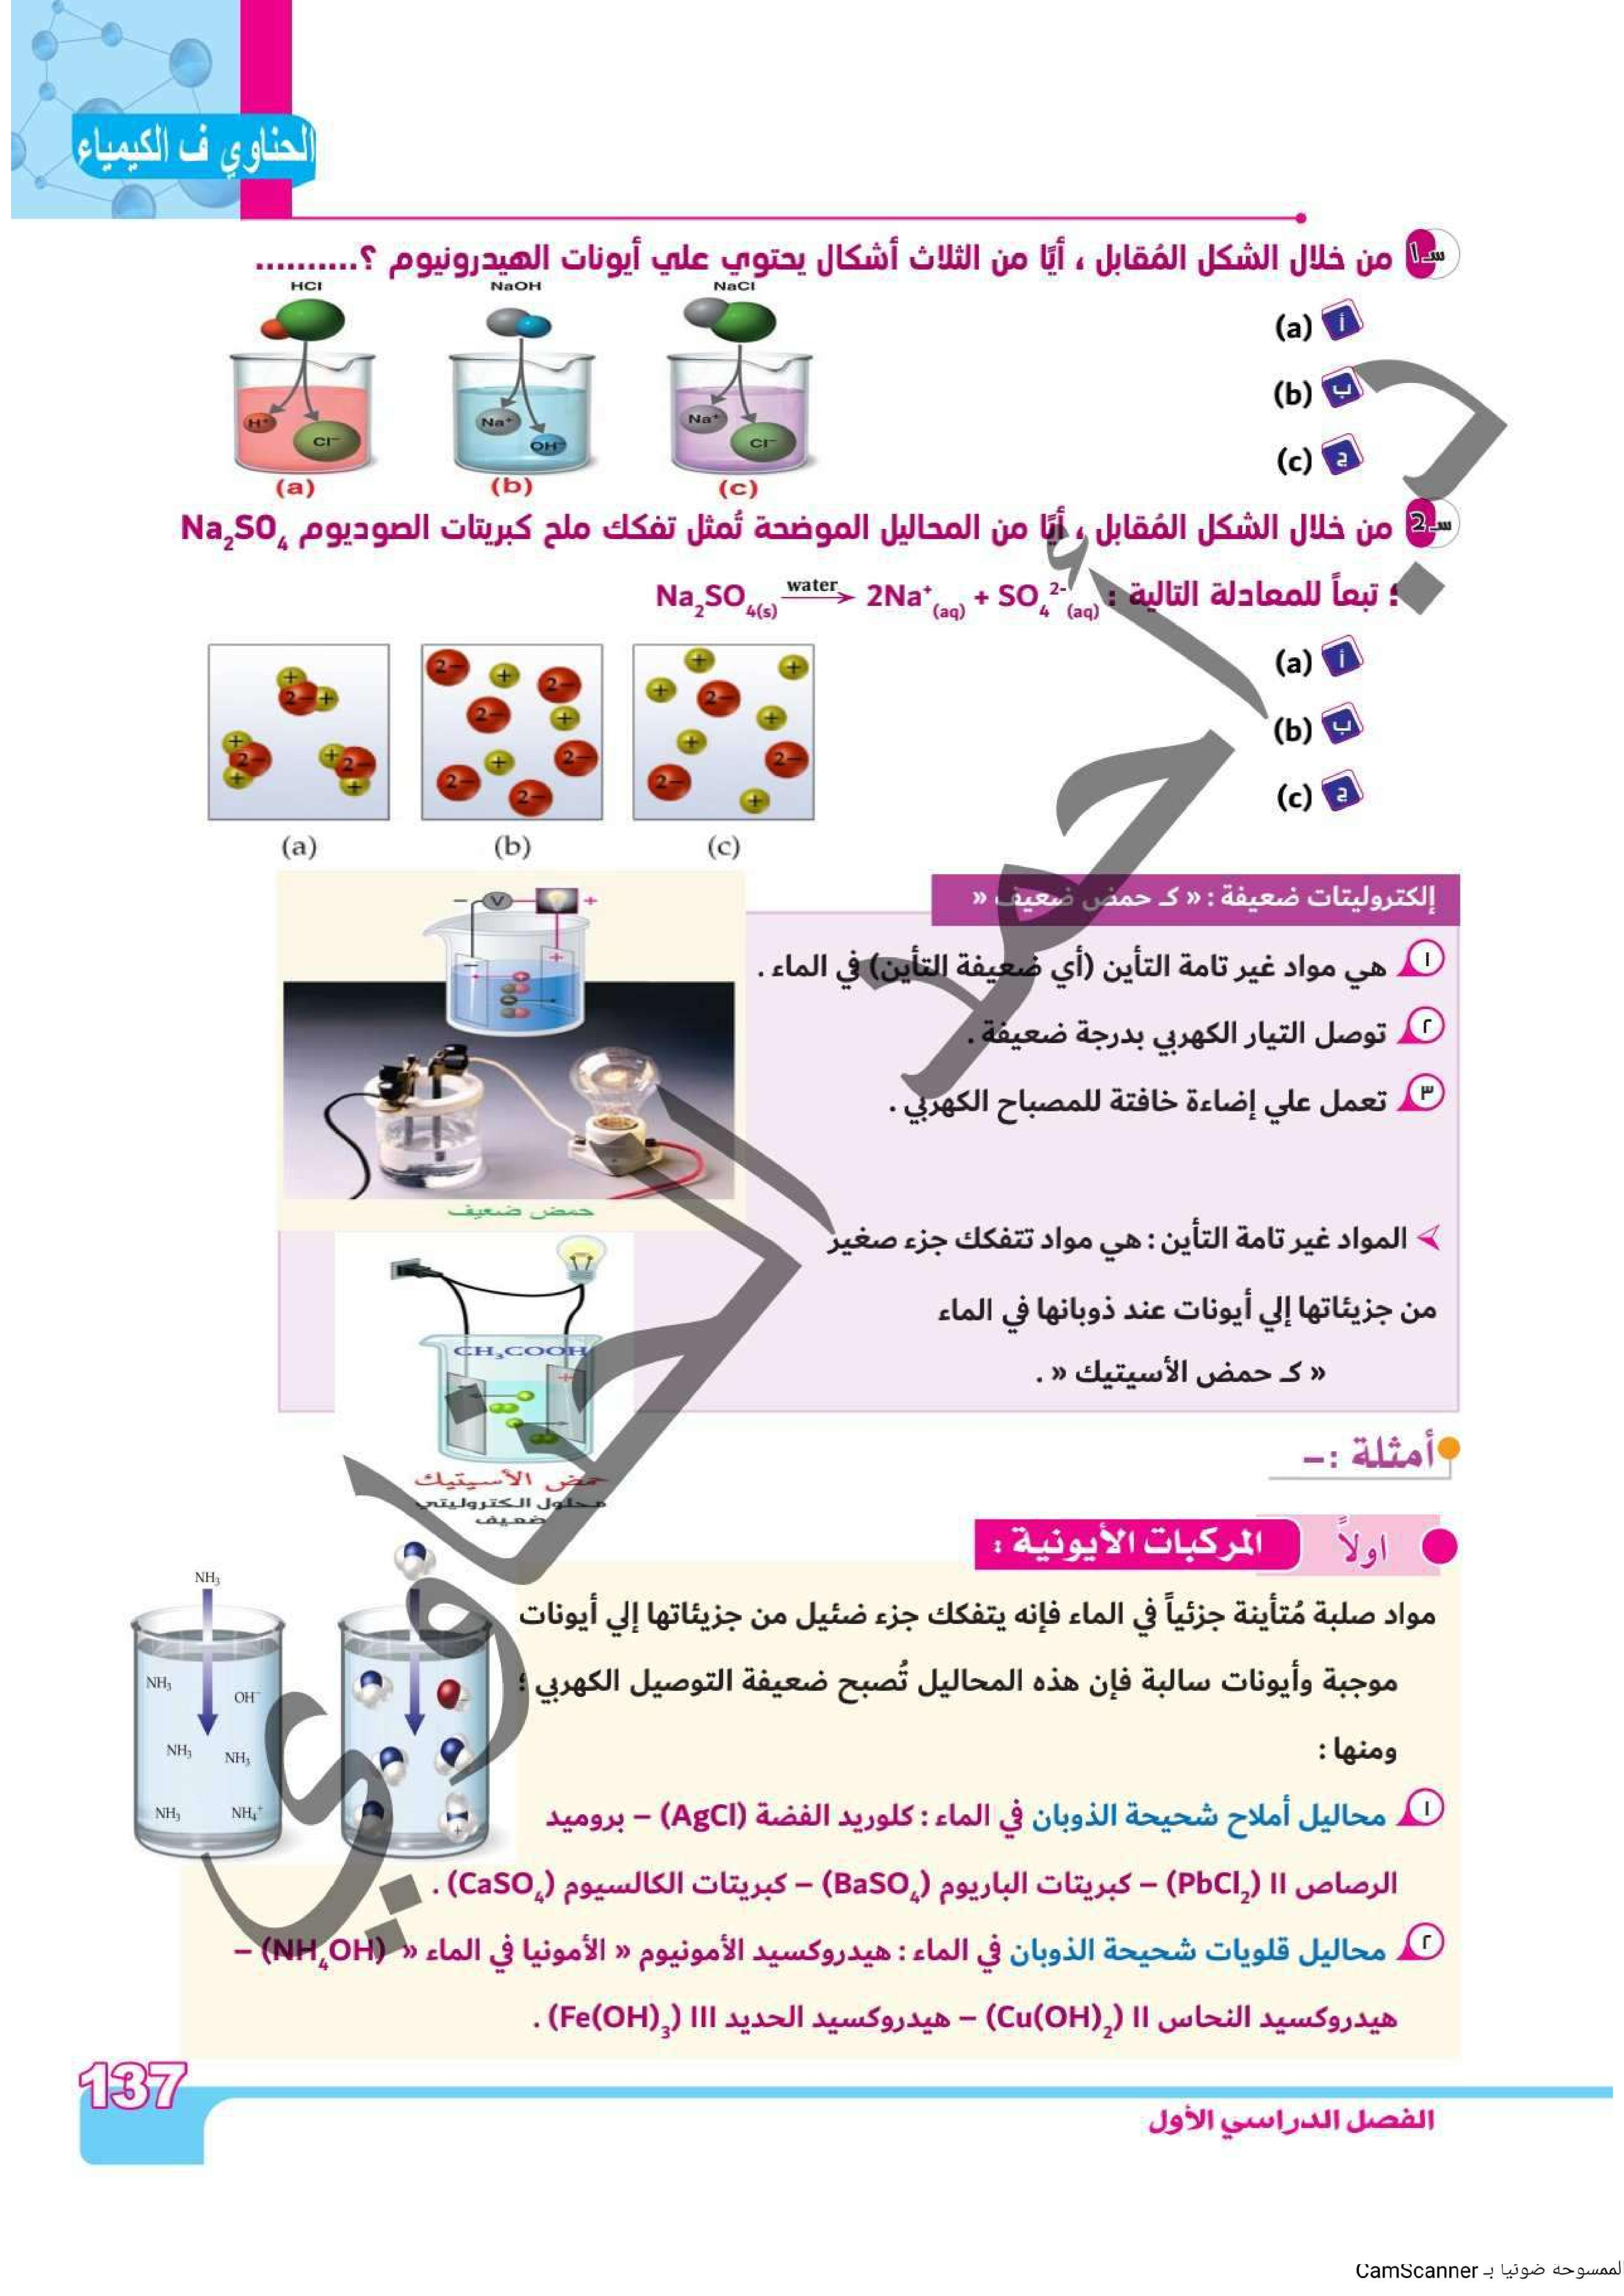 الحناوي ف الكيمياء
س1 من خلال الشكل المُقابل ، أيًا من الثلاث أشكال يحتوي علي أيونات الهيدرونيوم ؟..........
HCl NaOH NaCl
أ (a)
ب (b)
ج (c)
H+ Cl− Na+ OH− Na+ Cl−
(a) (b) (c)
س2 من خلال الشكل المُقابل ، أيًا من المحاليل الموضحة تُمثل تفكك ملح كبريتات الصوديوم Na2SO4
؛ تبعاً للمعادلة التالية : Na2SO4(s) water→ 2Na+(aq) + SO4 2-(aq)
أ (a)
ب (b)
ج (c)
(a) (b) (c)
إلكتروليتات ضعيفة : « كـ حمض ضعيف »
١ هي مواد غير تامة التأين (أي ضعيفة التأين) في الماء .
٢ توصل التيار الكهربي بدرجة ضعيفة .
٣ تعمل علي إضاءة خافتة للمصباح الكهربي .
− V +
حمض ضعيف
المواد غير تامة التأين : هي مواد تتفكك جزء صغير
من جزيئاتها إلي أيونات عند ذوبانها في الماء
« كـ حمض الأسيتيك » .
CH3COOH
حمض الأسيتيك
محلول الكتروليتي
ضعيف
أمثلة :–
اولاً المركبات الأيونية :
مواد صلبة مُتأينة جزئياً في الماء فإنه يتفكك جزء ضئيل من جزيئاتها إلي أيونات
موجبة وأيونات سالبة فإن هذه المحاليل تُصبح ضعيفة التوصيل الكهربي ؛
ومنها :
١ محاليل أملاح شحيحة الذوبان في الماء : كلوريد الفضة (AgCl) – بروميد
الرصاص II (PbCl2) – كبريتات الباريوم (BaSO4) – كبريتات الكالسيوم (CaSO4) .
٢ محاليل قلويات شحيحة الذوبان في الماء : هيدروكسيد الأمونيوم « الأمونيا في الماء » (NH4OH) –
هيدروكسيد النحاس II (Cu(OH)2) – هيدروكسيد الحديد III (Fe(OH)3) .
NH3
NH3 OH−
NH3 NH3
NH3 NH4+
أ. أحمد الحناوي
137
الفصل الدراسي الأول
الممسوحة ضوئيا بـ CamScanner